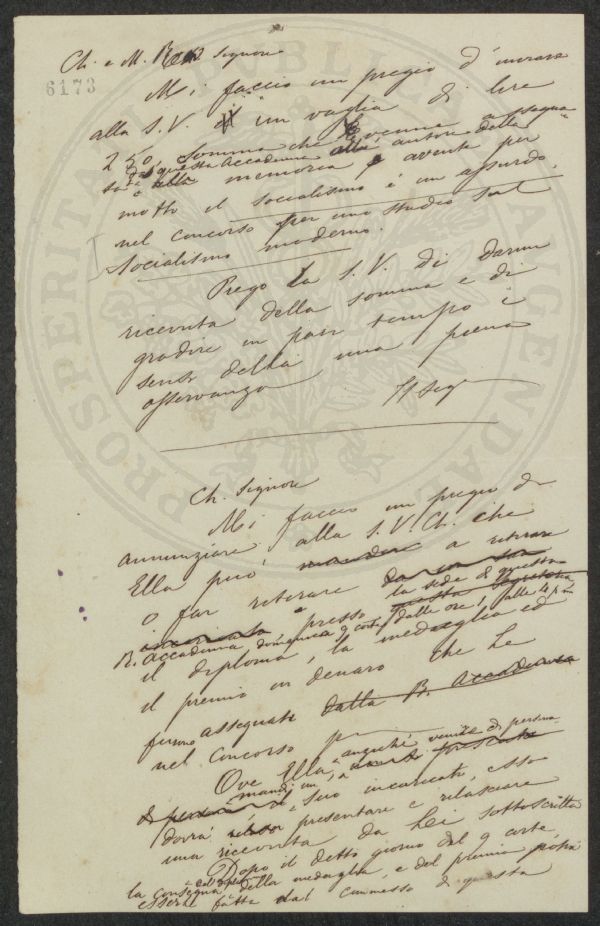 Ch. e M. Rev. Signore
6173
Mi faccio un pregio d'inviare
alla S. V. un vaglia di lire
250, somma che venne assegna-
ta da questa Accademia all' autore della
memoria avente per
motto il socialismo è un assurdo,
nel concorso per uno studio sul
Socialismo moderno.
Prego la S. V. di darmi
ricevuta della somma e di
gradire in pari tempo i
sensi della mia piena
osservanza
Il Seg
Ch. Signore
Mi faccio un pregio di
annunziare alla S. V. Ch. che
Ella può mandare a ritirare
o far ritirare da un suo
incaricato presso la sede di questa
R. Accademia, domenica 9 corte, dalle ore 1 alle 4 pm
il diploma, la medaglia ed
il premio in denaro che Le
furono assegnati dalla R. Accademia
nel concorso
Ove Ella anziché venire di persona
mandi un
suo incaricato, esso
dovrà presentare e rilasciare
una ricevuta da Lei sottoscritta
Dopo il detto giorno del 9 corte,
la consegna della medaglia, e del premio potrà
essere fatta dal commesso di questa
PROSPERITATI PUBLICAE AUGENDAE